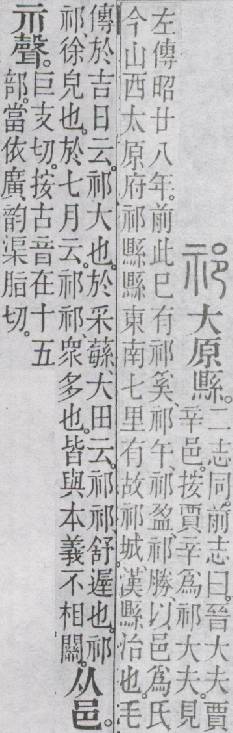 祁 大原縣。二志同。前志曰。晉大夫賈
辛邑。按賈辛爲祁大夫。見
左傳昭廿八年。前此巳有祁奚、祁午、祁盈祁勝。以邑爲氏。
今山西太原府祁縣縣東南七里有故祁城。漢縣治也。毛
傳於吉日云。祁大也。於采蘩大田云。祁祁舒遲也。祁
祁徐皃也。於七月云。祁祁衆多也。皆與本義不相關。从邑。
示聲。巨支切。按古音在十五
部。當依廣韵渠脂切。